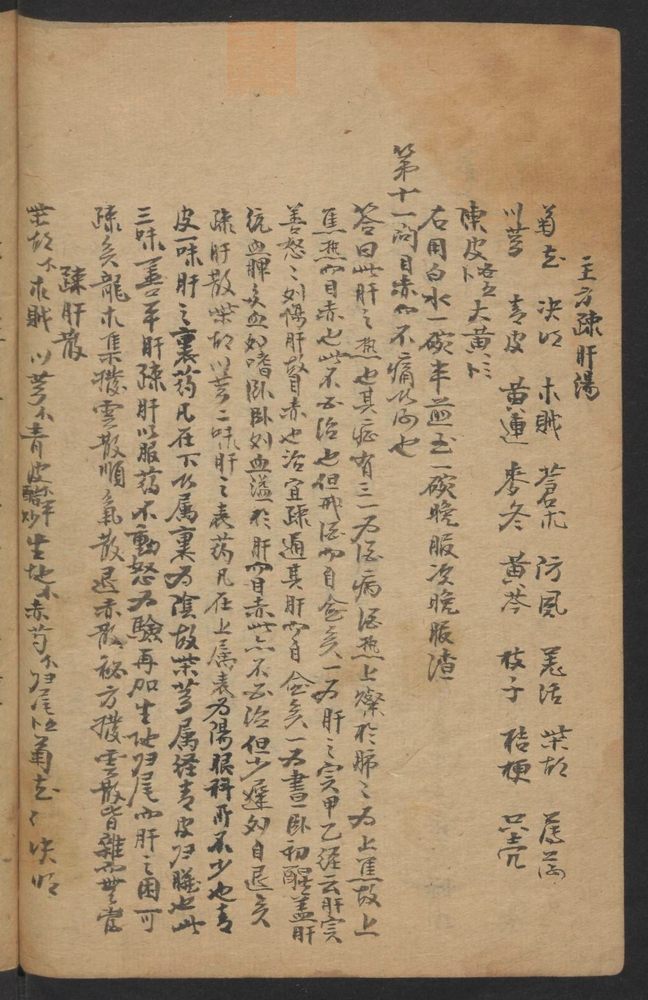 主方疎肝湯
菊花 决明 木賊 蒼朮 防風 羌活 柴胡 
川芎 青皮 黄連 麥冬 黄芩 枝子 桔梗
陳皮 大黄
右用白水一碗半煎至一碗晚服次晚服渣
第十一問目赤而不痛者何也
答曰此肝之熱也其症有三一为酒病酒熱上燥於肺之为上焦故上
焦熱而目赤也此不必治也但戒酒而自愈矣一为肝之实甲乙經云肝实
善怒怒則傷肝瞀赤也治宜疎通其肝而自愈矣一为晝卧初醒蓋肝
統血脾矣血如嗜卧卧則血溢於肝而目赤此亦不必治但少遲則自退矣
疎肝散柴胡川芎二味肝之表药凡在上属表为陽眼科所不少也青
皮一味肝之裏药凡在下者属裏为陰故柴芎属經青皮归臟也此
三味善平肝疎肝以服药不動怒为驗再加生地归尾而肝之困可
疎矣龍木集撥雲散順氣散退赤散秘方撥雲散皆雜而無當
疎肝散
柴胡 木賊 川芎 青皮 醋炒 生地 赤芍 归尾 菊花 决明